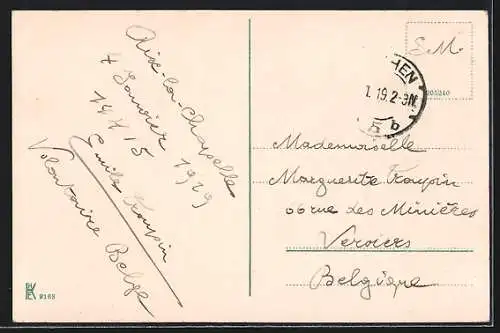 Aix-la-Chapelle
4 Janvier 1919
14 h 15
Emile Froupin
Volontaire Belge
S.M.
HEN
1.19.2-3N.
b
Mademoiselle
Marguerite Froupin
66 rue des Minières
Verviers
Belgique
9168